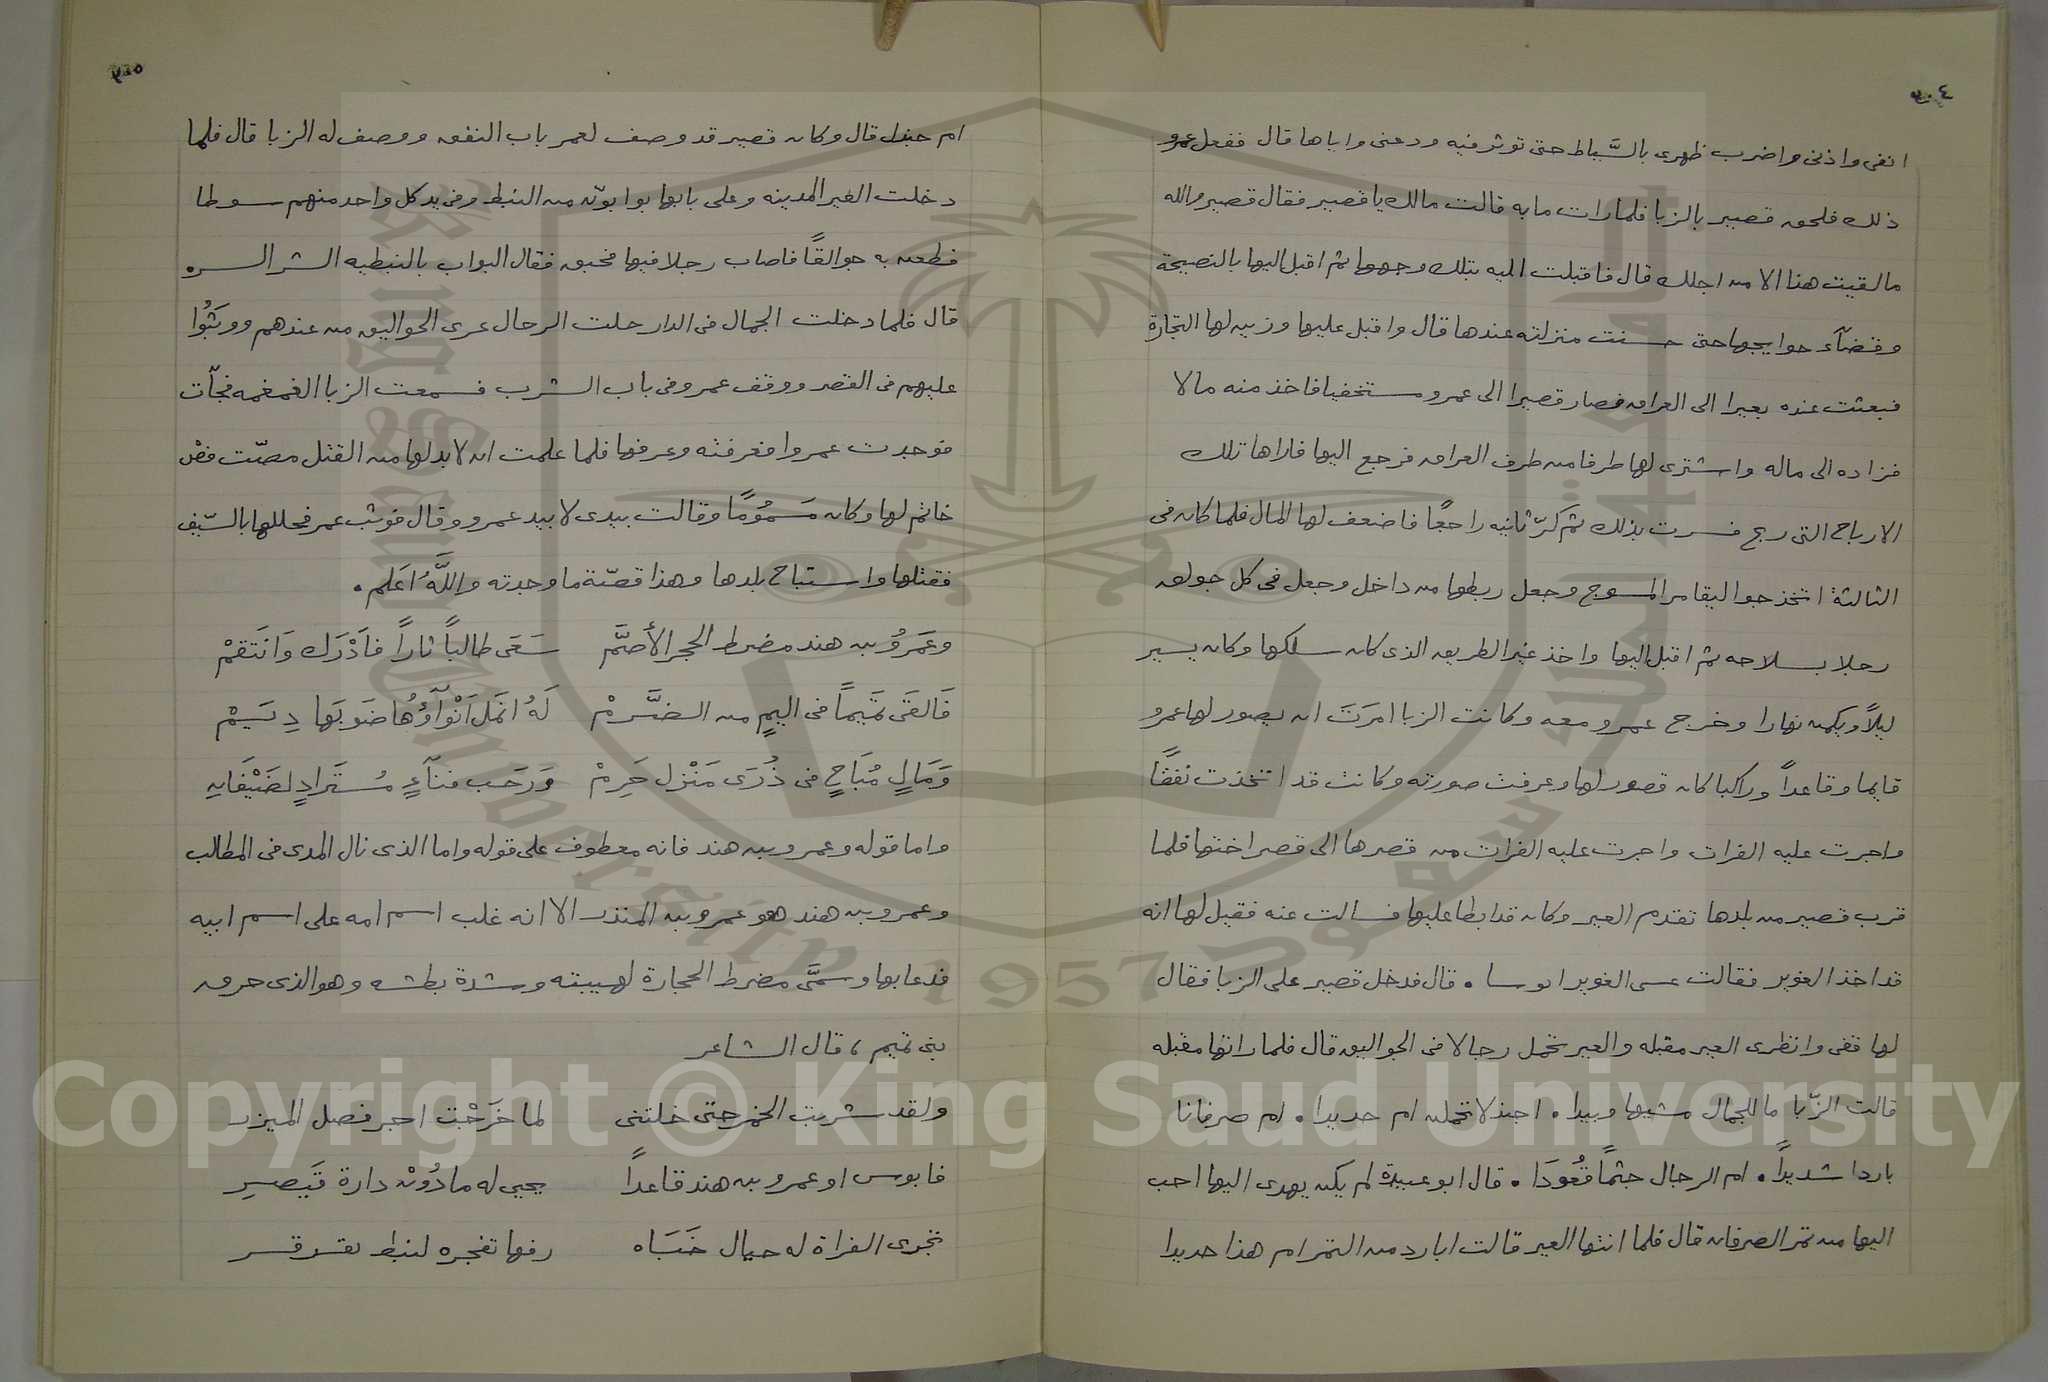 انفى واذنى واضرب ظهرى بالسَّياط حتى توثر فيه ودعنى واياها قال ففعل عمرو
ذلك فلحق قصير بالزبا فلما رات ما به قالت مالك يا قصير فقال قصير والله
مالقيت هذا الا من اجلك قال فاقبلت اليه بتلك وجهها ثم اقبل اليها بالنصيحة
وقضآء حوايجها حتى حسنت منزلته عندها قال واقبل عليها وزين لها التجارة
فبعثت عنده بعيرا الى العراق فصار قصيرا الى عمرو مستخفيا فاخذ منه مالا
فزاده الى ماله واشترى لها طرفا من طرف العراق فرجع اليها فاراها تلك
الارباح التى ربح فسرت بذلك ثم كرّ ثانيه راجعًا فاضعف لها المال فلما كان فى
الثالثة اتخذ جواليقا من المسوح وجعل ربطها من داخل وجعل فى كل جولق
رجلا بسلاحه ثم اقبل اليها واخذ غير الطريق الذى كان سلكها وكان يسير
ليلاً ويكمن نهارا وخرج عمرو معه وكانت الزبا امرَتَ ان يصور لها عمرو
قايما وقاعداً وراكبا كان قصور لها وعرفت صورته وكانت قد اتخذت نفقًا
واجرت عليه الفرات واجرت عليه الفرات من قصرها الى قصر اختها فلما
قرب قصير من بلدها تقدم العير وكان قد ابطا عليها فسالت عنه فقيل لها انه
قد اخذ الغوير فقالت عسى الغوير ابوسا . قال فدخل قصير على الزبا فقال
لها قفى وانظرى العير مقبله والعير تحمل رجالا فى الجواليق قال فلما راتها مقبله
قالت الزّبا ما للجمال مشيها وييدا . اجندلا تحملن ام حديدا . ام صرفانا
باردا شديداً . ام الرجال جثماً قُعُودَا . قال ابو عبيدة لم يكن يهدى اليها احب
اليها من تمر الصرفان قال فلما اتتها العير قالت ابارد من التمر ام هذا حديدا
ام جندل قال وكان قصير قد وصف لعمر باب النفق ووصف له الزبا قال فلما
دخلت العير المدينه وعلى بابها بوابون من النبط وفى يد كل واحد منهم سوطا
فطعن به جوالقًا فاصاب رجلا فيها فحبق فقال البواب بالنبطيه الشر
قال فلما دخلت الجمال فى الدار حلت الرجال عرى الجواليق من عندهم ووثبُوا
عليهم فى القصر ووقف عمرو فى باب السرب فسمعت الزبا الغمغمه فجآت
فوجدت عمروا فعرفته وعرفها فلما علمت ان لا بد لها من القتل مصّت فصْ
خاتم لها وكان مَسمُومًا وقالت بيدى لا بيد عمرو وقال فوثب عمر فجللها بالسّيف
فقتلها واستباح بلدها وهذا قصّة ما وجدته واللَّهُ اَعَلم .
وعَمَروُ بن هند مضرط الحجر الأصمَّ سَعَى طالباً ثاراً فاَدْرَك وَانَتَقمْ
فَالقَى تمَيماً فى اليمٍ من الضَّرمْ لَهُ انمَل اَنْوآؤُهُا صَوبَها دِيَمْ
وَمَالٍ مُبَاحٍ فى ذُرَى مَنْزل حَرِمْ وَرَحَب فنآءٍ مُستَرادٍ لضَيْفَانِ
واما قوله وعمرو بن هند فانه معطوف على قوله واما الذى نال المدى فى المطالب
وعمرو بن هند هو عمرو بن المنذر الا انه غلب اسم امه على اسم ابيه
فدعا بها وسمَّى مضرط الحجارة لهيبته وشدة بطشه وهو الذى حرق
بنى تميم ، قال الشاعر
ولقد شربت الخمر حتى خلتنى لما خَرَجْت اجر فضل الميزر
قابوس او عمرو بن هند قاعداً يجبى له ما دُونْ دارة قَيَصرِ
تجرى الفراة له حيال خَبَاه